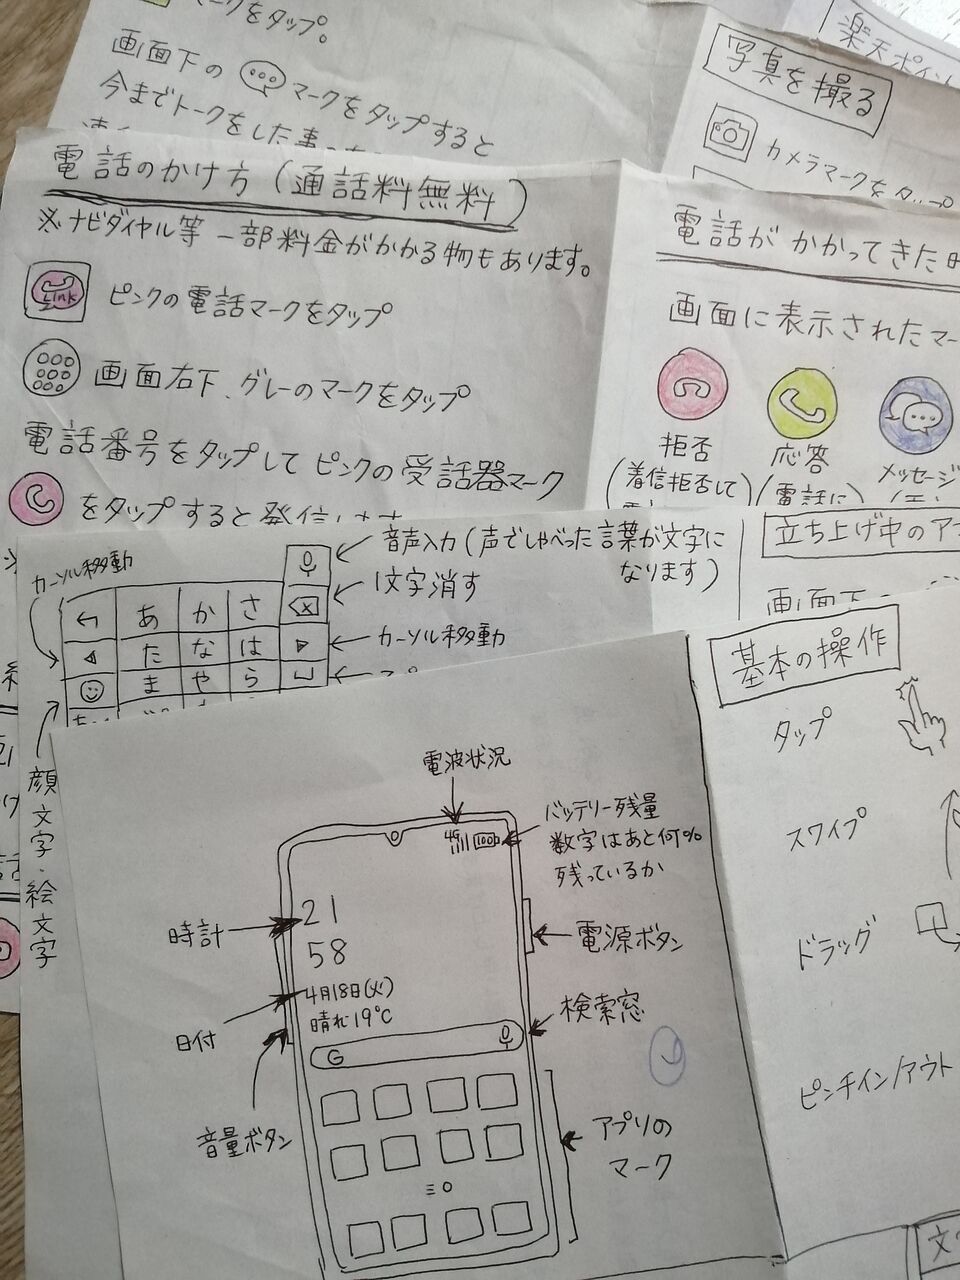 マークをタップ。
画面下の マークをタップすると
今までトークをした事
楽天ポイン
写真を撮る
カメラマークをタップ
電話のかけ方(通話料無料)
※ナビダイヤル等 一部料金がかかる物もあります。
Link
ピンクの電話マークをタップ
画面右下、グレーのマークをタップ
電話番号をタップして ピンクの受話器マーク
をタップすると発信します
電話がかかってきた時
画面に表示されたマー
拒否
(着信拒否して
応答
(電話に
メッセージ
立ち上げ中のア
画面下
カーソル移動
音声入力(声でしゃべった言葉が文字に
なります)
1文字消す
カーソル移動
あ か さ
た な は
ま や ら
顔文字・絵文字
基本の操作
タップ
スワイプ
ドラッグ
ピンチイン/アウト
電波状況
バッテリー残量
数字はあと何%
残っているか
4G
100
時計
21
58
電源ボタン
4月18日(火)
晴れ 19℃
日付
検索窓
G
音量ボタン
アプリの
マーク
文